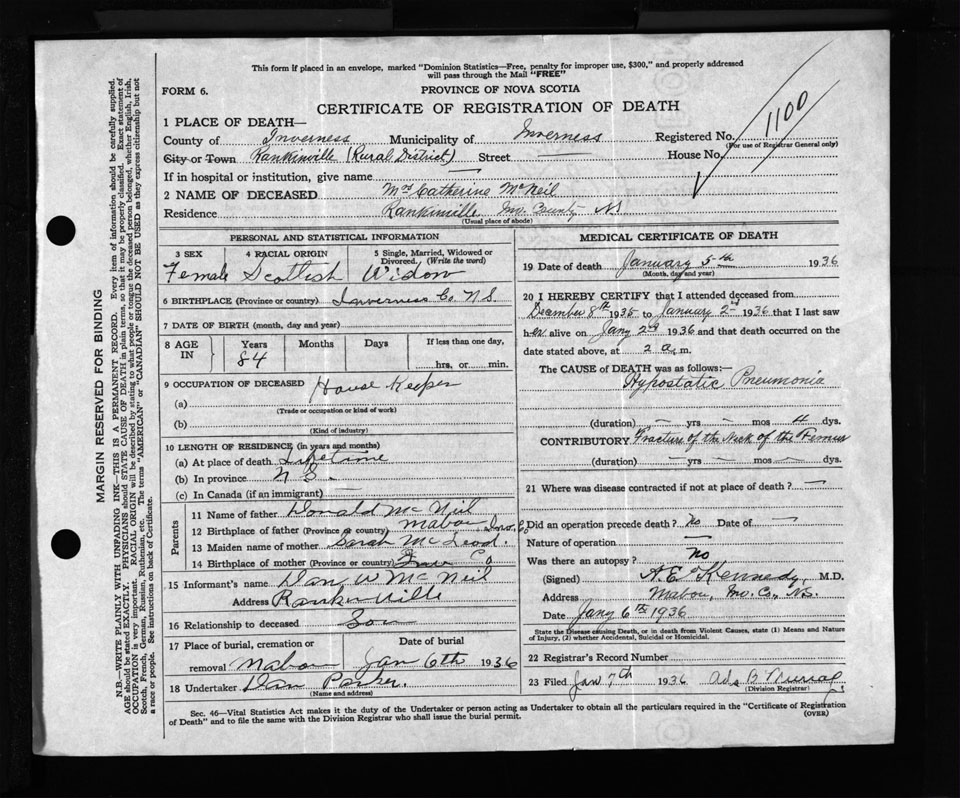 This form if placed in an envelope, marked "Dominion Statistics—Free, penalty for improper use, $300," and properly addressed
will pass through the Mail "FREE"
FORM 6.
PROVINCE OF NOVA SCOTIA
CERTIFICATE OF REGISTRATION OF DEATH
1100
1 PLACE OF DEATH—
County of Inverness Municipality of Inverness Registered No.
(For use of Registrar General only)
City or Town Rankinville (Rural District) Street — House No.
If in hospital or institution, give name —
2 NAME OF DECEASED Mrs Catherine McNeil
Residence Rankinville Inv. County NS
(Usual place of abode)
PERSONAL AND STATISTICAL INFORMATION
3 SEX 4 RACIAL ORIGIN 5 Single, Married, Widowed or Divorced. (Write the word)
Female Scottish Widow
6 BIRTHPLACE (Province or country) Inverness Co N.S.
7 DATE OF BIRTH (month, day and year)
8 AGE IN Years Months Days If less than one day,
84 hrs. or min.
9 OCCUPATION OF DECEASED House Keeper
(a)
(Trade or occupation or kind of work)
(b)
(Kind of industry)
10 LENGTH OF RESIDENCE (in years and months)
(a) At place of death Lifetime
(b) In province N S —
(c) In Canada (if an immigrant) —
Parents
11 Name of father Donald McNeil
12 Birthplace of father (Province or country) Mabou Inv. Co
13 Maiden name of mother Sarah McLeod.
14 Birthplace of mother (Province or country) Inv Co
15 Informant's name Dan W McNeil
Address Rankinville
16 Relationship to deceased Son
17 Place of burial, cremation or removal Mabou Date of burial Jan 6th 1936
18 Undertaker Dan Parker.
(Name and address)
MEDICAL CERTIFICATE OF DEATH
19 Date of death January 5th 1936
(Month, day and year)
20 I HEREBY CERTIFY that I attended deceased from
December 8th 1935 to January 2nd 1936 that I last saw
her alive on Jany 2nd 1936 and that death occurred on
date stated above, at 2 a. m.
The CAUSE of DEATH was as follows:—
Hypostatic Pneumonia
(duration) — yrs — mos 4 dys.
CONTRIBUTORY Fracture of the Neck of the Femur
(duration) — yrs — mos — dys.
21 Where was disease contracted if not at place of death? —
Did an operation precede death? No Date of —
Nature of operation —
Was there an autopsy? No
(Signed) A.E. Kennedy, M.D.
Address Mabou, Inv. Co., N.S.
Date Jany 6th 1936
State the Disease causing Death, or in death from Violent Causes, state (1) Means and Nature
of Injury, (2) whether Accidental, Suicidal or Homicidal.
22 Registrar's Record Number
23 Filed Jan 7th 1936 B Murray
(Division Registrar)
Sec. 46—Vital Statistics Act makes it the duty of the Undertaker or person acting as Undertaker to obtain all the particulars required in the "Certificate of Registration
of Death" and to file the same with the Division Registrar who shall issue the burial permit.
(OVER)
MARGIN RESERVED FOR BINDING
N.B.—WRITE PLAINLY WITH UNFADING INK—THIS IS A PERMANENT RECORD. Every item of information should be carefully supplied.
AGE should be stated EXACTLY. PHYSICIANS should STATE CAUSE OF DEATH in plain terms, so that it may be properly classified. Exact statement of
OCCUPATION is very important. RACIAL ORIGIN will be described by stating to what people or tongue the deceased person belonged, whether English, Irish,
Scotch, French, German, Russian, Ruthenian, etc. The terms "AMERICAN" or "CANADIAN" SHOULD NOT BE USED as they express citizenship but not
a race or people. See instructions on back of Certificate.